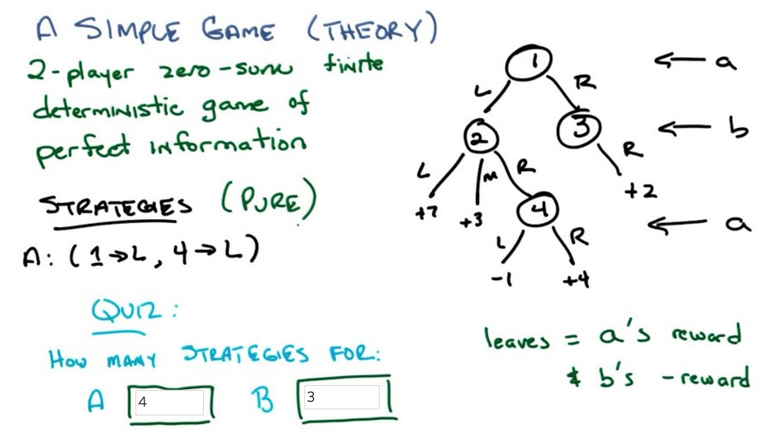 A SIMPLE GAME (THEORY)
2-player zero-sum finite
deterministic game of
perfect information
STRATEGIES (PURE)
A: (1→L, 4→L)
QUIZ:
HOW MANY STRATEGIES FOR:
A 4 B 3
1 ← a
L R
2 3 ← b
L M R R
+7 +3 4 +2 ← a
L R
-1 +4
leaves = a's reward
& b's -reward